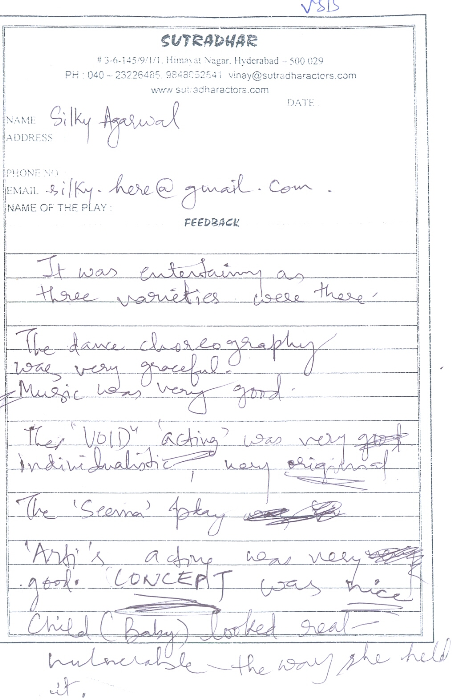 SUTRADHAR
# 3-6-145/9/1/1, Himayat Nagar, Hyderabad - 500 029
PH : 040 - 23226485, 9848052841 vinay@sutradharactors.com
www.sutradharactors.com
DATE
NAME Silky Agarwal
ADDRESS
PHONE NO
EMAIL silky.here@gmail.com.
NAME OF THE PLAY :
FEEDBACK
It was entertaining as
three varieties were there.
The dance choreography
was very graceful.
Music was very good.
The "VOID" 'acting' was very good
Individualistic, very original
The 'Seema' play
'Arti's acting was very
good. CONCEPT was nice
Child (Baby) looked real-
vulnerable - the way she held
it.